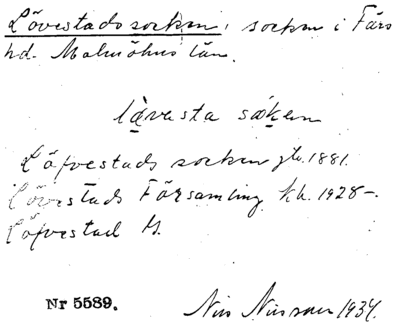 Lövestads socken, socken i Färs
hd. Malmöhus län.
làvesta såken
Löfvestads socken jb. 1881.
Lövestads Församling kb. 1928-.
Löfvestad
Nr 5589.
Nils Nilsson 1934.